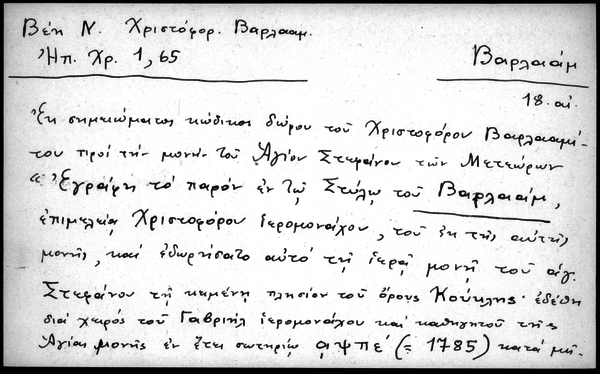 Βέη Ν. Χριστόφορ. Βαρλααμ.
Ἠπ. Χρ. 1, 65
Βαρλαάμ
18. αἰ.
Ἐκ σημειώματος κώδικος δώρου τοῦ Χριστοφόρου Βαρλααμί-
του πρός τήν μονήν τοῦ Ἁγίου Στεφάνου τῶν Μετεώρων
« Ἐγράφη τό παρόν ἐν τῷ Στύλῳ τοῦ Βαρλαάμ,
ἐπιμελείᾳ Χριστοφόρου ἱερομονάχου, τοῦ ἐκ τῆς αὐτῆς
μονῆς, καί ἐδωρήσατο αὐτό τῇ ἱερᾷ μονῇ τοῦ ἁγ.
Στεφάνου τῇ κειμένῃ πλησίον τοῦ ὄρους Κούκλης· ἐδέθη
διά χειρός τοῦ Γαβριήλ ἱερομονάχου καί καθηγητοῦ τῆς
Ἁγίας μονῆς ἐν ἔτει σωτηρίῳ αψπε´ (= 1785) κατά μῆ-